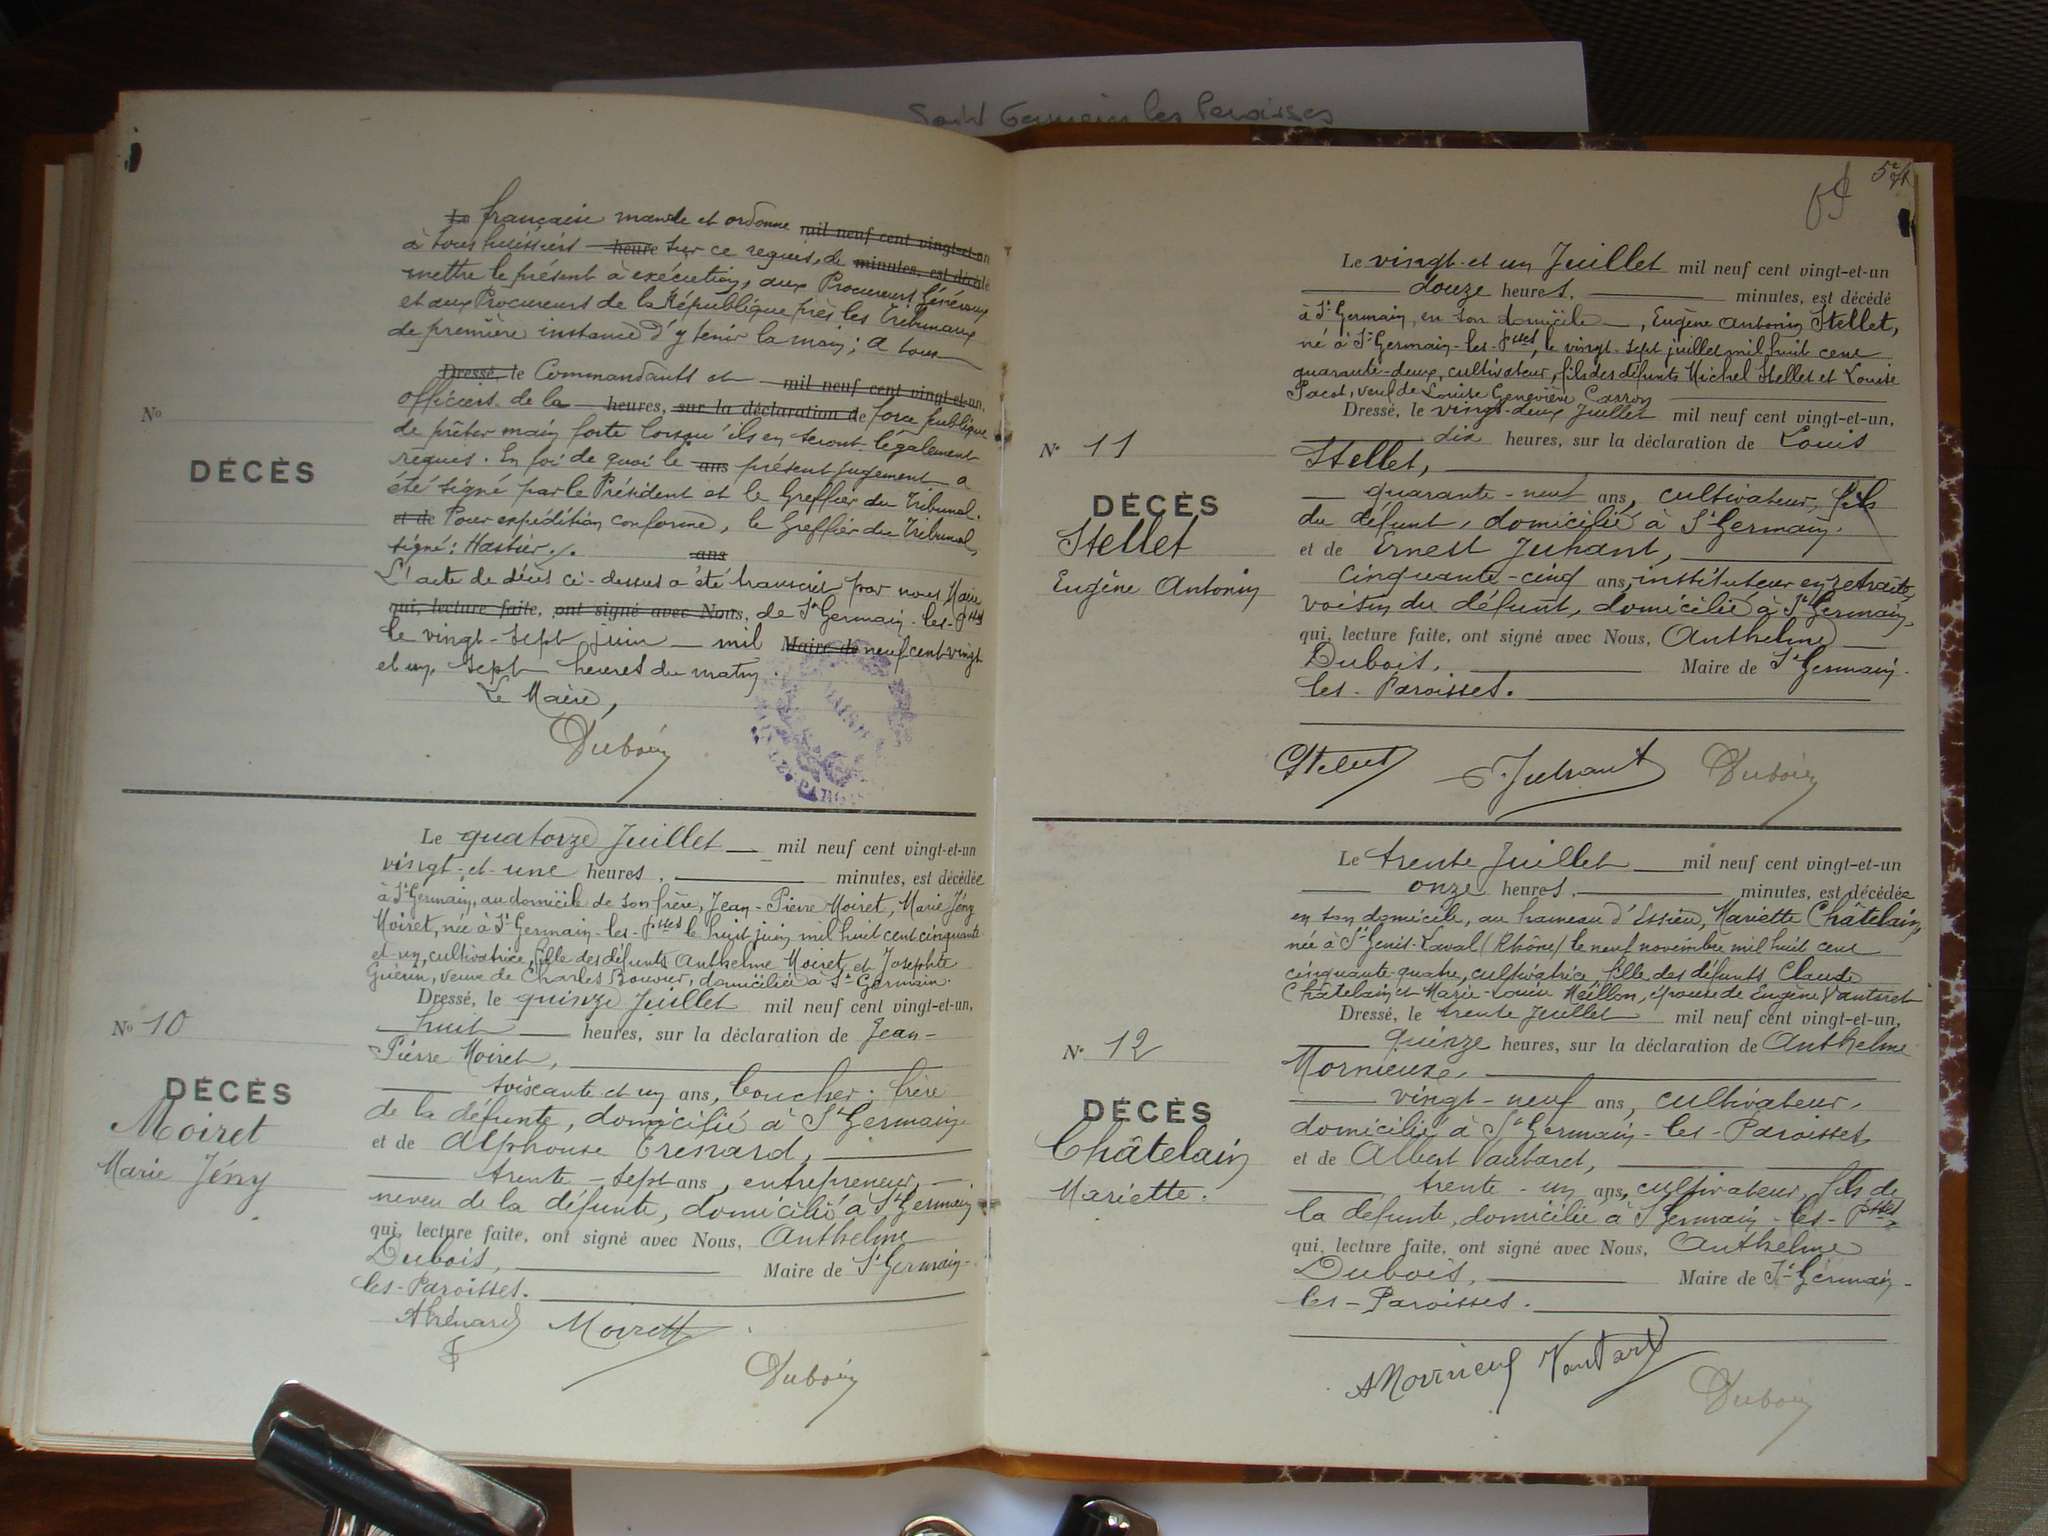 Saint Germain les Paroisses
Le française mande et ordonne mil neuf cent vingt-et-un
à tous huissiers heure sur ce requis, de minutes, est décédé
mettre le présent à exécution, aux Procureurs Généraux
et aux Procureurs de la République près les Tribunaux
de première instance d'y tenir la main; a tous
Dressé, le Commandants et mil neuf cent vingt-et-un,
officiers de la heures, sur la déclaration de force publique
de prêter main forte lorsqu'ils en seront légalement
requis. En foi de quoi le ans présent jugement a
été signé par le Président et le Greffier du Tribunal.
et de Pour expédition conforme, le Greffier du Tribunal,
signé: Hastier./.
ans
L'acte de décès ci-dessus a été transcrit par nous Maire
qui, lecture faite, ont signé avec Nous, de St Germain-les-Psses
le vingt-sept juin mil Maire de neuf cent vingt
et un, sept heures du matin
Le Maire,
Dubois
No
DÉCÈS
Le quatorze Juillet mil neuf cent vingt-et-un
vingt-et-une heures, minutes, est décédée
à St Germain, au domicile de son frère, Jean-Pierre Moiret, Marie Jény
Moiret, née à St Germain-les-psses le huit juin mil huit cent cinquante
et un, cultivatrice, fille des défunts Anthelme Moiret et Josephte
Guérin, veuve de Charles Bouvier, domiciliée à St Germain.
Dressé, le quinze Juillet mil neuf cent vingt-et-un,
huit heures, sur la déclaration de Jean-
Pierre Moiret,
soixante et un ans, boucher, frère
de la défunte, domicilié à St Germain
et de Alphonse Trénard,
trente-sept ans, entrepreneur,
neveu de la défunte, domicilié à St Germain
qui, lecture faite, ont signé avec Nous, Anthelme
Dubois, Maire de St Germain-
les-Paroisses.
ATrénard Moiret
Dubois
No 10
DÉCÈS
Moiret
Marie Jény
Le vingt-et un Juillet mil neuf cent vingt-et-un
douze heures, minutes, est décédé
à St Germain, en son domicile, Eugène Antonin Stellet,
né à St Germain-les-psses, le vingt-sept juillet mil huit cent
quarante-deux, cultivateur, fils des défunts Michel Stellet et Louise
Pacot, veuf de Louise Geneviève Carron
Dressé, le vingt-deux Juillet mil neuf cent vingt-et-un,
dix heures, sur la déclaration de Louis
Stellet,
quarante-neuf ans, cultivateur, fils
du défunt, domicilié à St Germain.
et de Ernest Juhant,
cinquante-cinq ans, instituteur en retraite,
voisin du défunt, domicilié à St Germain,
qui, lecture faite, ont signé avec Nous, Anthelme
Dubois, Maire de St Germain-
les-Paroisses.
Stellet E. Juhant Dubois
No 11
DÉCÈS
Stellet
Eugène Antonin
Le trente Juillet mil neuf cent vingt-et-un
onze heures, minutes, est décédée
en son domicile, au hameau d'Essieu, Mariette Châtelain,
née à St Genis-Laval (Rhône) le neuf novembre mil huit cent
cinquante-quatre, cultivatrice, fille des défunts Claude
Châtelain et Marie-Louise Meillon, épouse de Eugène Vautaret
Dressé, le trente Juillet mil neuf cent vingt-et-un,
quinze heures, sur la déclaration de Anthelme
Mornieux,
vingt-neuf ans, cultivateur,
domicilié à St Germain-les-Paroisses
et de Albert Vautaret,
trente-un ans, cultivateur, fils de
la défunte, domicilié à St Germain-les-Psses,
qui, lecture faite, ont signé avec Nous, Anthelme
Dubois, Maire de St Germain-
les-Paroisses.
AMornieux Vautaret
Dubois
No 12
DÉCÈS
Châtelain
Mariette.